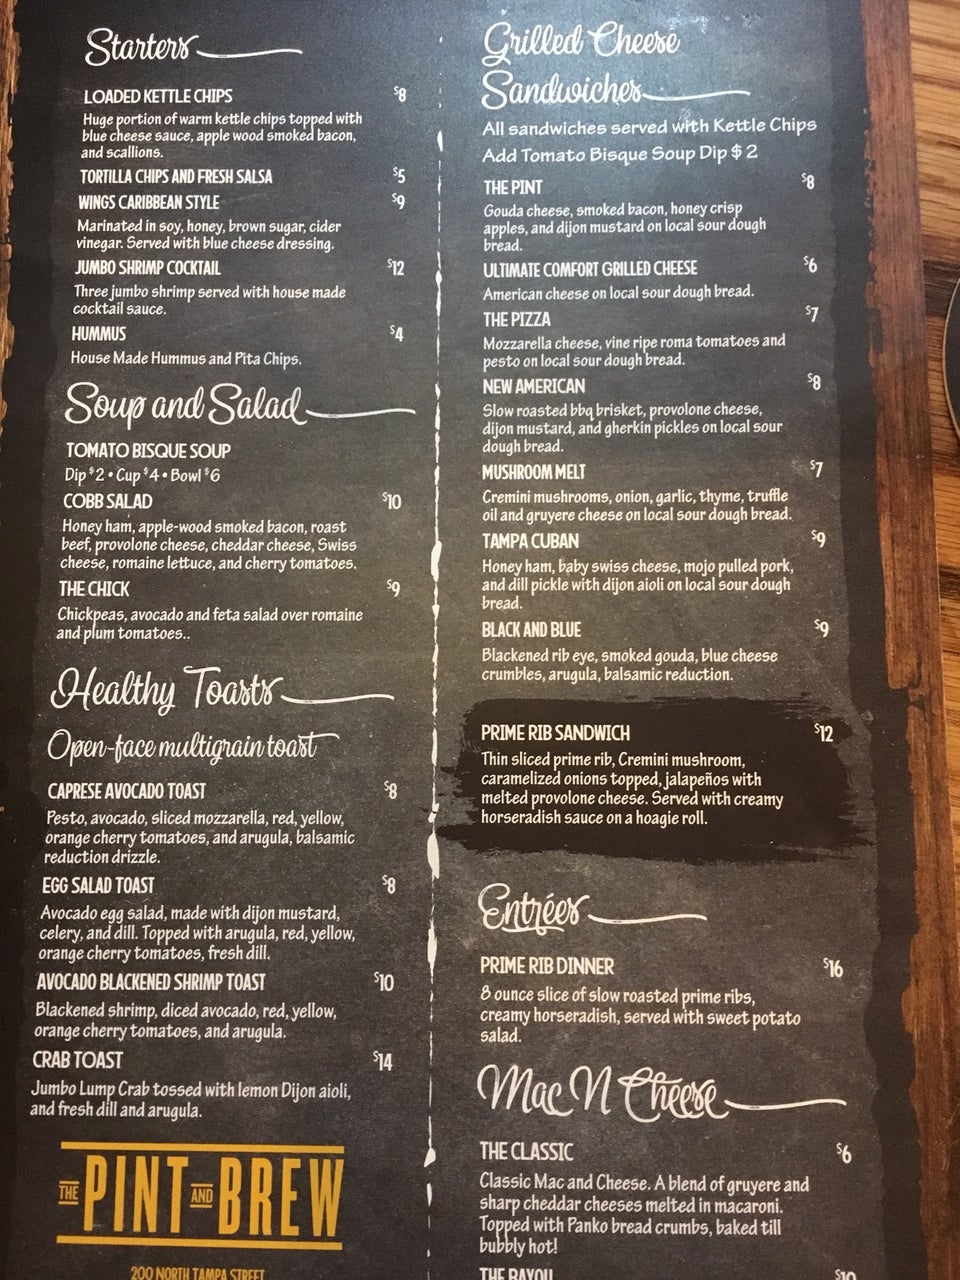 Starters
LOADED KETTLE CHIPS $8
Huge portion of warm kettle chips topped with
blue cheese sauce, apple wood smoked bacon,
and scallions.
TORTILLA CHIPS AND FRESH SALSA $5
WINGS CARIBBEAN STYLE $9
Marinated in soy, honey, brown sugar, cider
vinegar. Served with blue cheese dressing.
JUMBO SHRIMP COCKTAIL $12
Three jumbo shrimp served with house made
cocktail sauce.
HUMMUS $4
House Made Hummus and Pita Chips.
Soup and Salad
TOMATO BISQUE SOUP
Dip $2 • Cup $4 • Bowl $6
COBB SALAD $10
Honey ham, apple-wood smoked bacon, roast
beef, provolone cheese, cheddar cheese, Swiss
cheese, romaine lettuce, and cherry tomatoes.
THE CHICK $9
Chickpeas, avocado and feta salad over romaine
and plum tomatoes..
Healthy Toasts
Open-face multigrain toast
CAPRESE AVOCADO TOAST $8
Pesto, avocado, sliced mozzarella, red, yellow,
orange cherry tomatoes, and arugula, balsamic
reduction drizzle.
EGG SALAD TOAST $8
Avocado egg salad, made with dijon mustard,
celery, and dill. Topped with arugula, red, yellow,
orange cherry tomatoes, fresh dill.
AVOCADO BLACKENED SHRIMP TOAST $10
Blackened shrimp, diced avocado, red, yellow,
orange cherry tomatoes, and arugula.
CRAB TOAST $14
Jumbo Lump Crab tossed with lemon Dijon aioli,
and fresh dill and arugula.
THE PINT AND BREW
200 NORTH TAMPA STREET
Grilled Cheese
Sandwiches
All sandwiches served with Kettle Chips
Add Tomato Bisque Soup Dip $ 2
THE PINT $8
Gouda cheese, smoked bacon, honey crisp
apples, and dijon mustard on local sour dough
bread.
ULTIMATE COMFORT GRILLED CHEESE $6
American cheese on local sour dough bread.
THE PIZZA $7
Mozzarella cheese, vine ripe roma tomatoes and
pesto on local sour dough bread.
NEW AMERICAN $8
Slow roasted bbq brisket, provolone cheese,
dijon mustard, and gherkin pickles on local sour
dough bread.
MUSHROOM MELT $7
Cremini mushrooms, onion, garlic, thyme, truffle
oil and gruyere cheese on local sour dough bread.
TAMPA CUBAN $9
Honey ham, baby swiss cheese, mojo pulled pork,
and dill pickle with dijon aioli on local sour dough
bread.
BLACK AND BLUE $9
Blackened rib eye, smoked gouda, blue cheese
crumbles, arugula, balsamic reduction.
PRIME RIB SANDWICH $12
Thin sliced prime rib, Cremini mushroom,
caramelized onions topped, jalapeños with
melted provolone cheese. Served with creamy
horseradish sauce on a hoagie roll.
Entrées
PRIME RIB DINNER $16
8 ounce slice of slow roasted prime ribs,
creamy horseradish, served with sweet potato
salad.
Mac N Cheese
THE CLASSIC $6
Classic Mac and Cheese. A blend of gruyere and
sharp cheddar cheeses melted in macaroni.
Topped with Panko bread crumbs, baked till
bubbly hot!
THE BAYOU $10